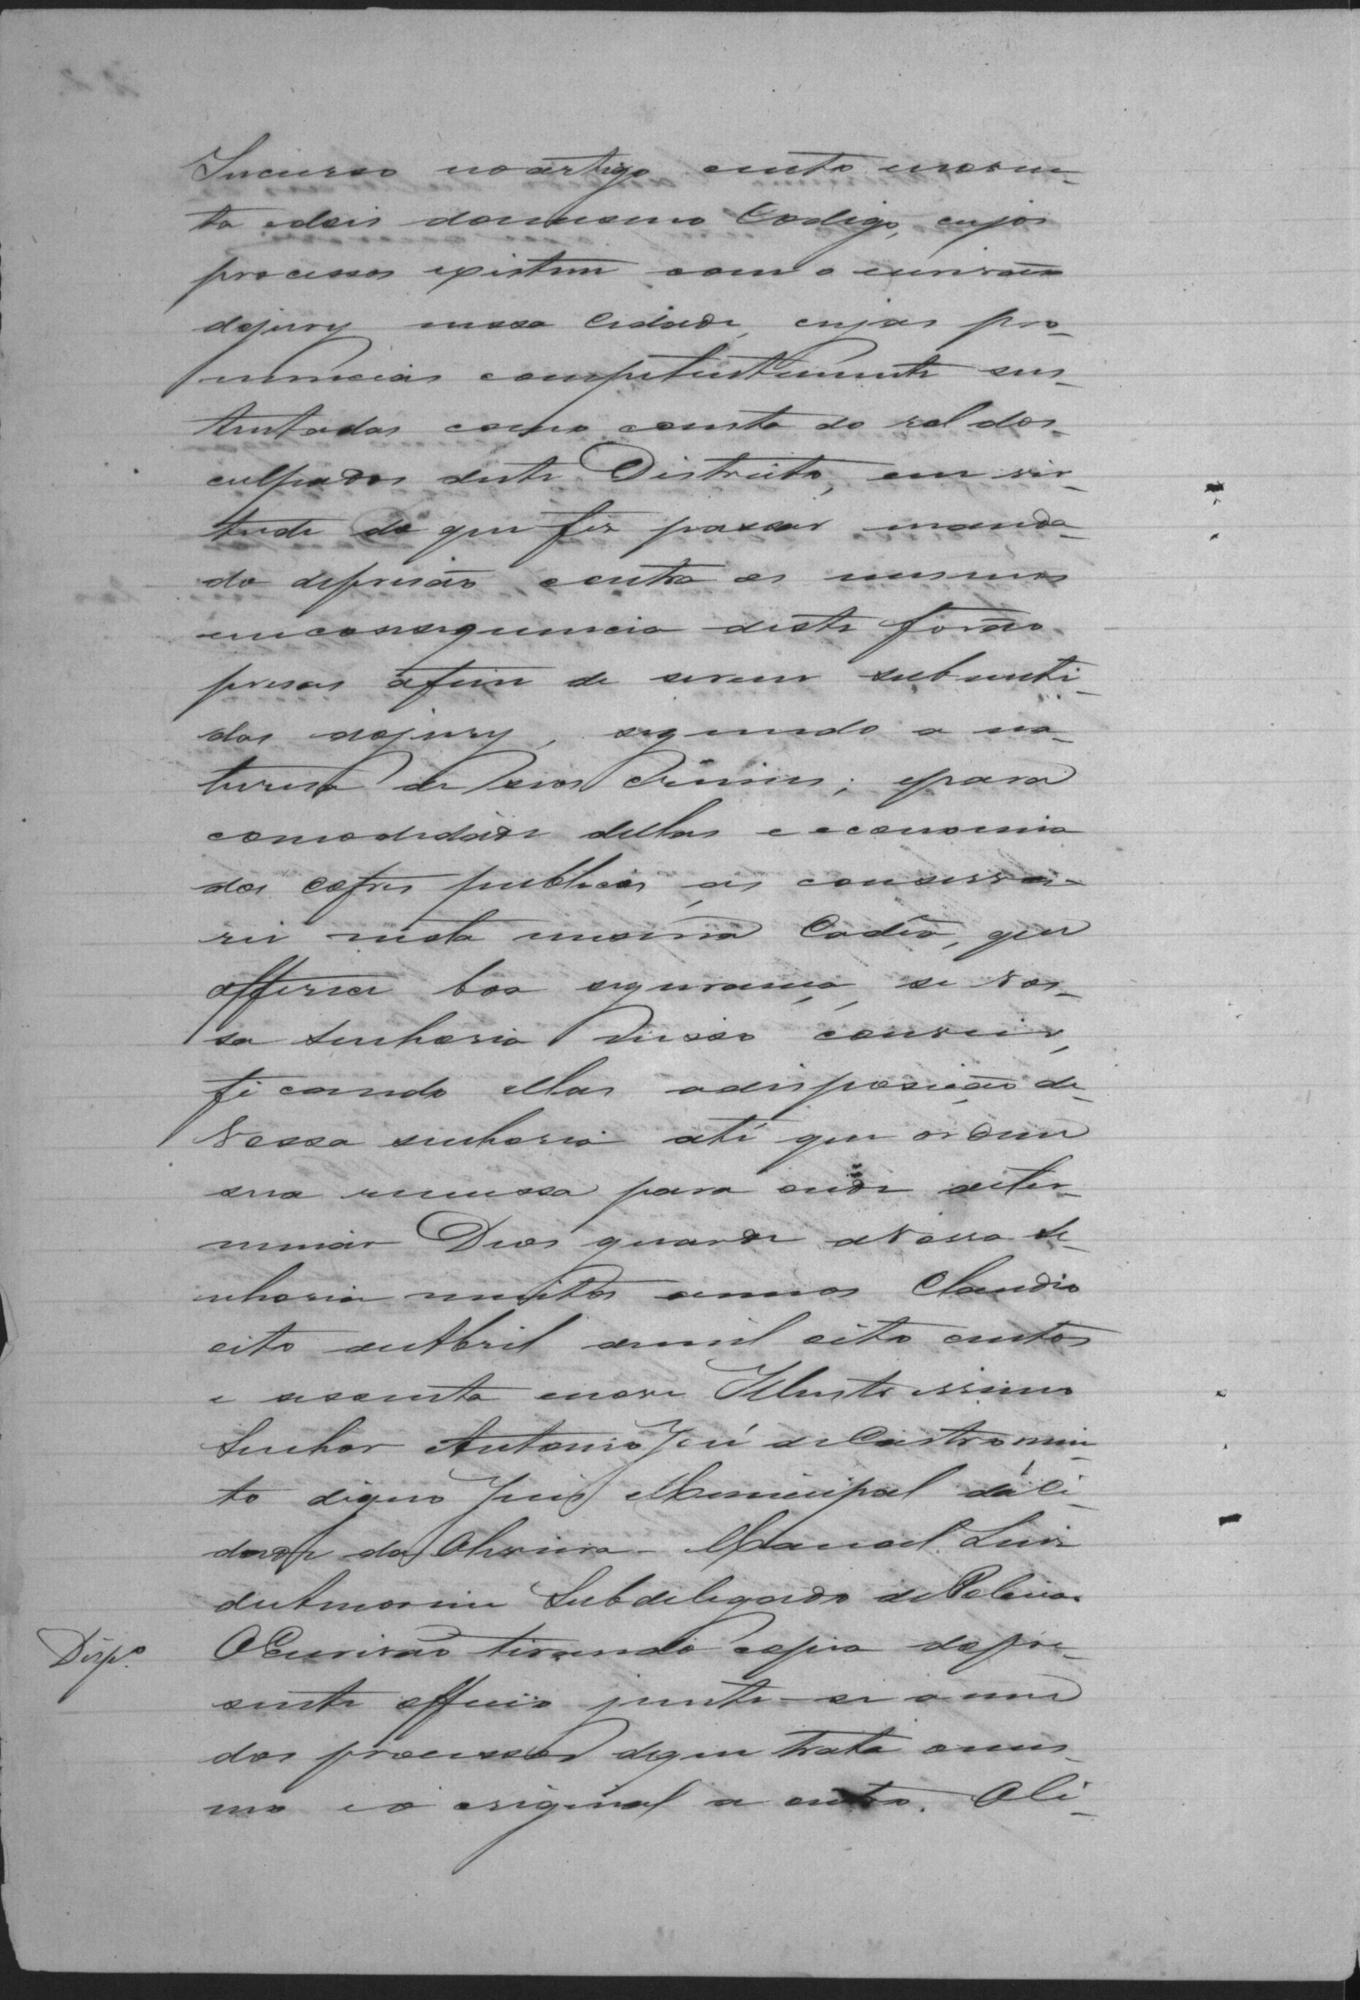 Incurso no artigo cento enoven-
ta edois domesmo Codigo, cujos
processos existem com o escrivão
dojury nessa Cidade, cujas pro-
nuncias competentemente sus-
tentadas como consta do rol dos
culpados deste Districto, em vir-
tude do que fiz passar manda-
do deprisão contra as mesmas
emconsequencia deste forão
presas afim de serem submeti-
das aojury, segundo a na-
tureza de seos Crimes; epara
comodidade dellas e economia
dos cofres publicos, as conserva-
rei nesta mesma Cadêa, que
offerece boa segurança, se Vos-
sa Senhoria nisso convier,
ficando ellas adisposição de
Vossa senhoria até que ordene
sua remessa para onde deter-
minar Deos guarde aVossa Se-
nhoria muitos annos Claudio
oito deAbril demil oito centos
e sessenta enove Illustrissimo
Senhor Antonio José de Castro
to digno Juis Municipal da Ci-
dade da Oliveira - Manoel Luis
deAmorim Subdelegado de Policia.
Disp.º
OEscrivão tirando copia dopre-
sente officio junte-se a um
dos processos dequetrata omes-
mo eo original a outro. Oli-